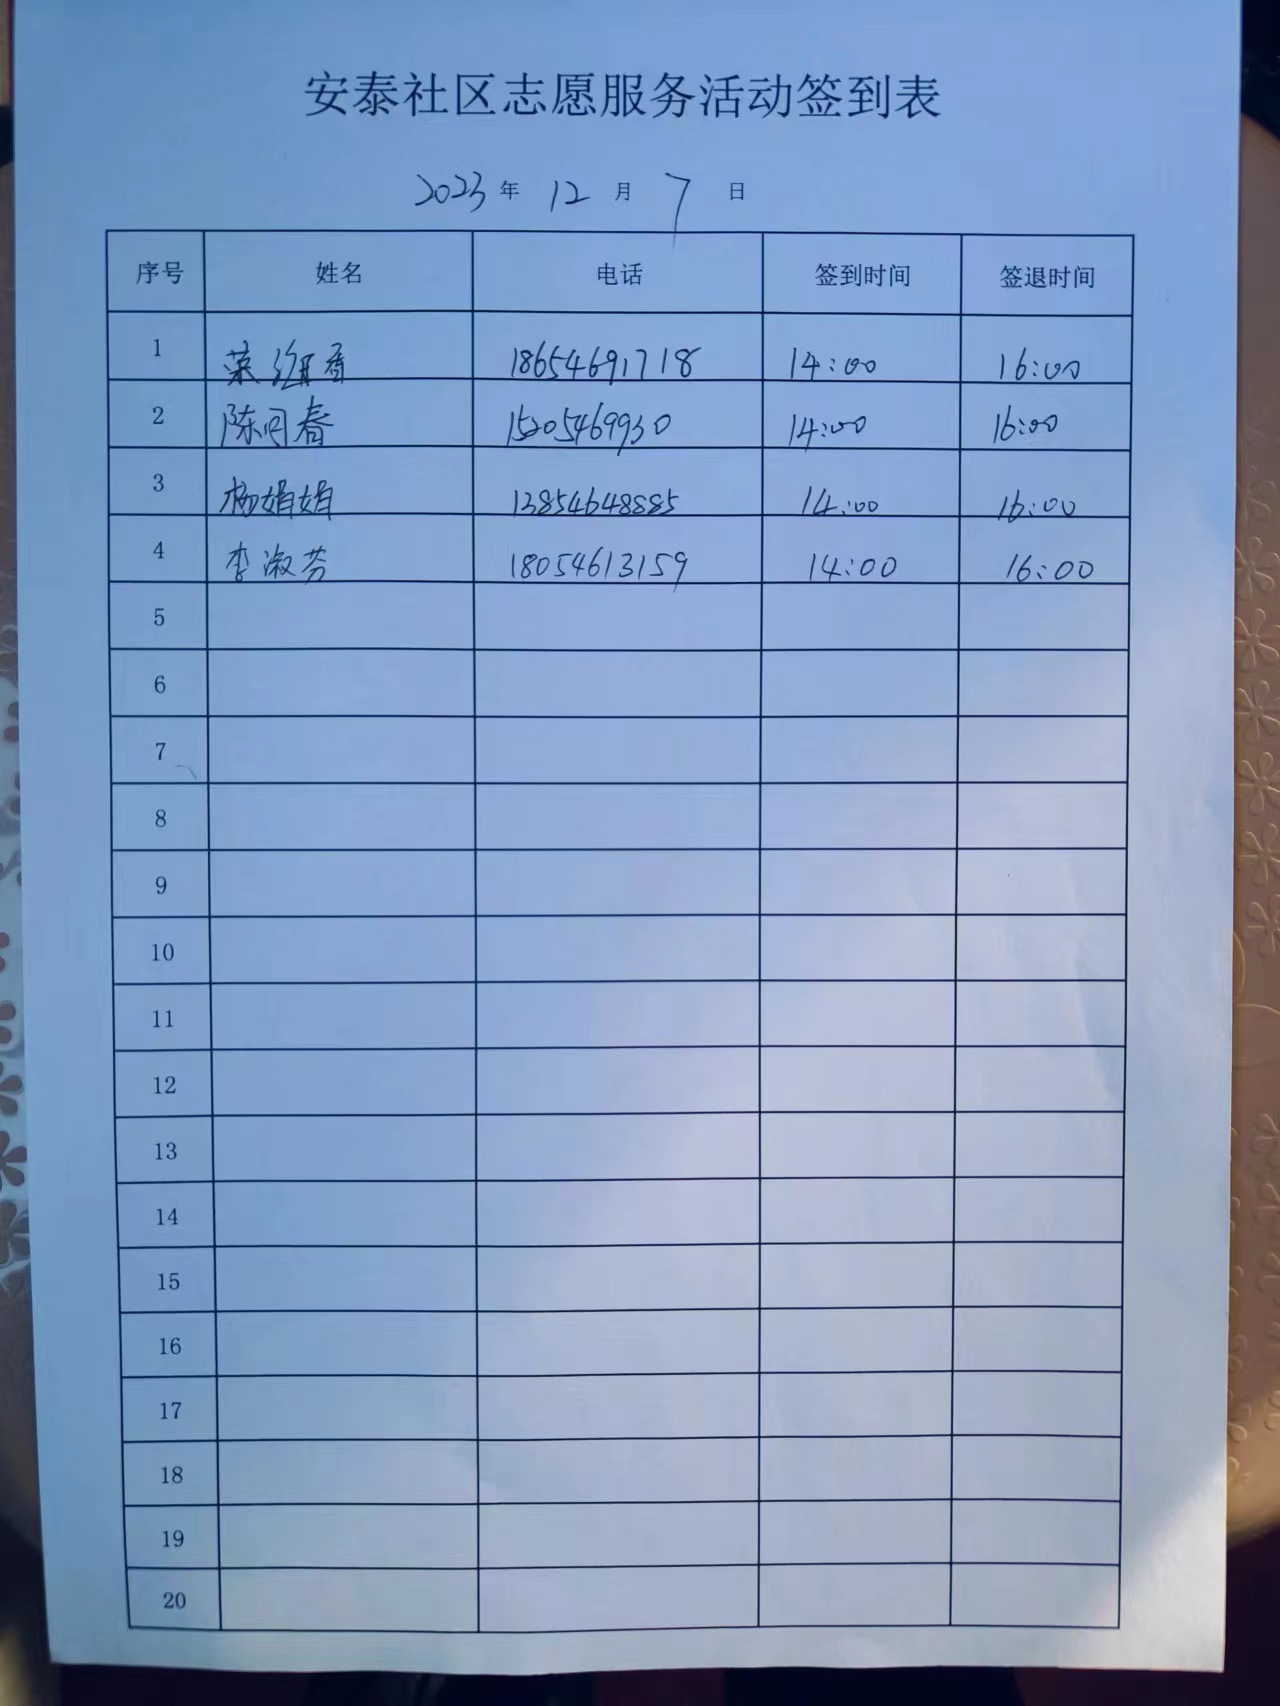 安泰社区志愿服务活动签到表
2023 年 12 月 7 日
序号 姓名 电话 签到时间 签退时间
1 18654691718 14:00 16:00
2 陈同春 15205469930 14:00 16:00
3 杨娟娟 13854648885 14:00 16:00
4 李淑芬 18054613159 14:00 16:00
5
6
7
8
9
10
11
12
13
14
15
16
17
18
19
20